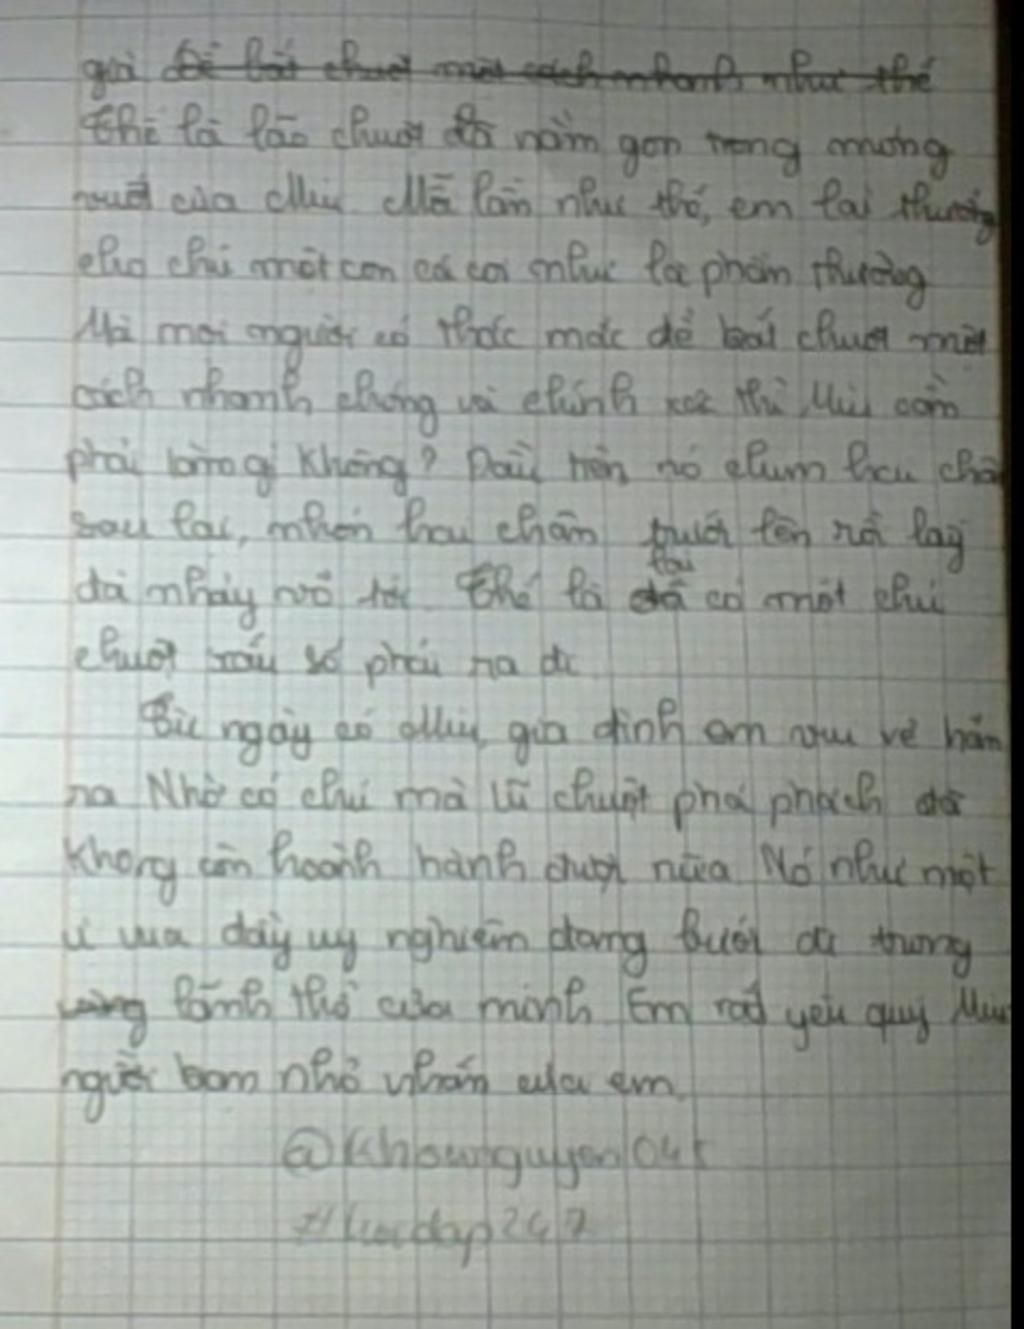 già để bắt chuột một cách nhanh như thế
Thế là lão chuột đã nằm gọn trong
của Miu. Mỗi lần như thế, em lại thưởng
cho chú một con cá coi như là phần thưởng
Mà mọi người có thắc mắc để bắt chuột một
cách nhanh chóng và chính xác thì Miu cần
phải làm gì không? Đầu tiên nó chụm hai chân
sau lại, nhón hai chân trước lên rồi lấy
đà nhảy vồ tới. Thế là lại đã có một chú
chuột xấu số phải ra đi
Từ ngày có Miu, gia đình em vui vẻ hẳn
ra Nhờ có chú mà lũ chuột phá phách đã
không còn hoành hành được nữa Nó như một
vị vua đầy uy nghiêm đang bước đi trong
vùng lãnh thổ của mình Em rất yêu quý Miu
người bạn nhỏ nhắn của em.
@khoinguyen